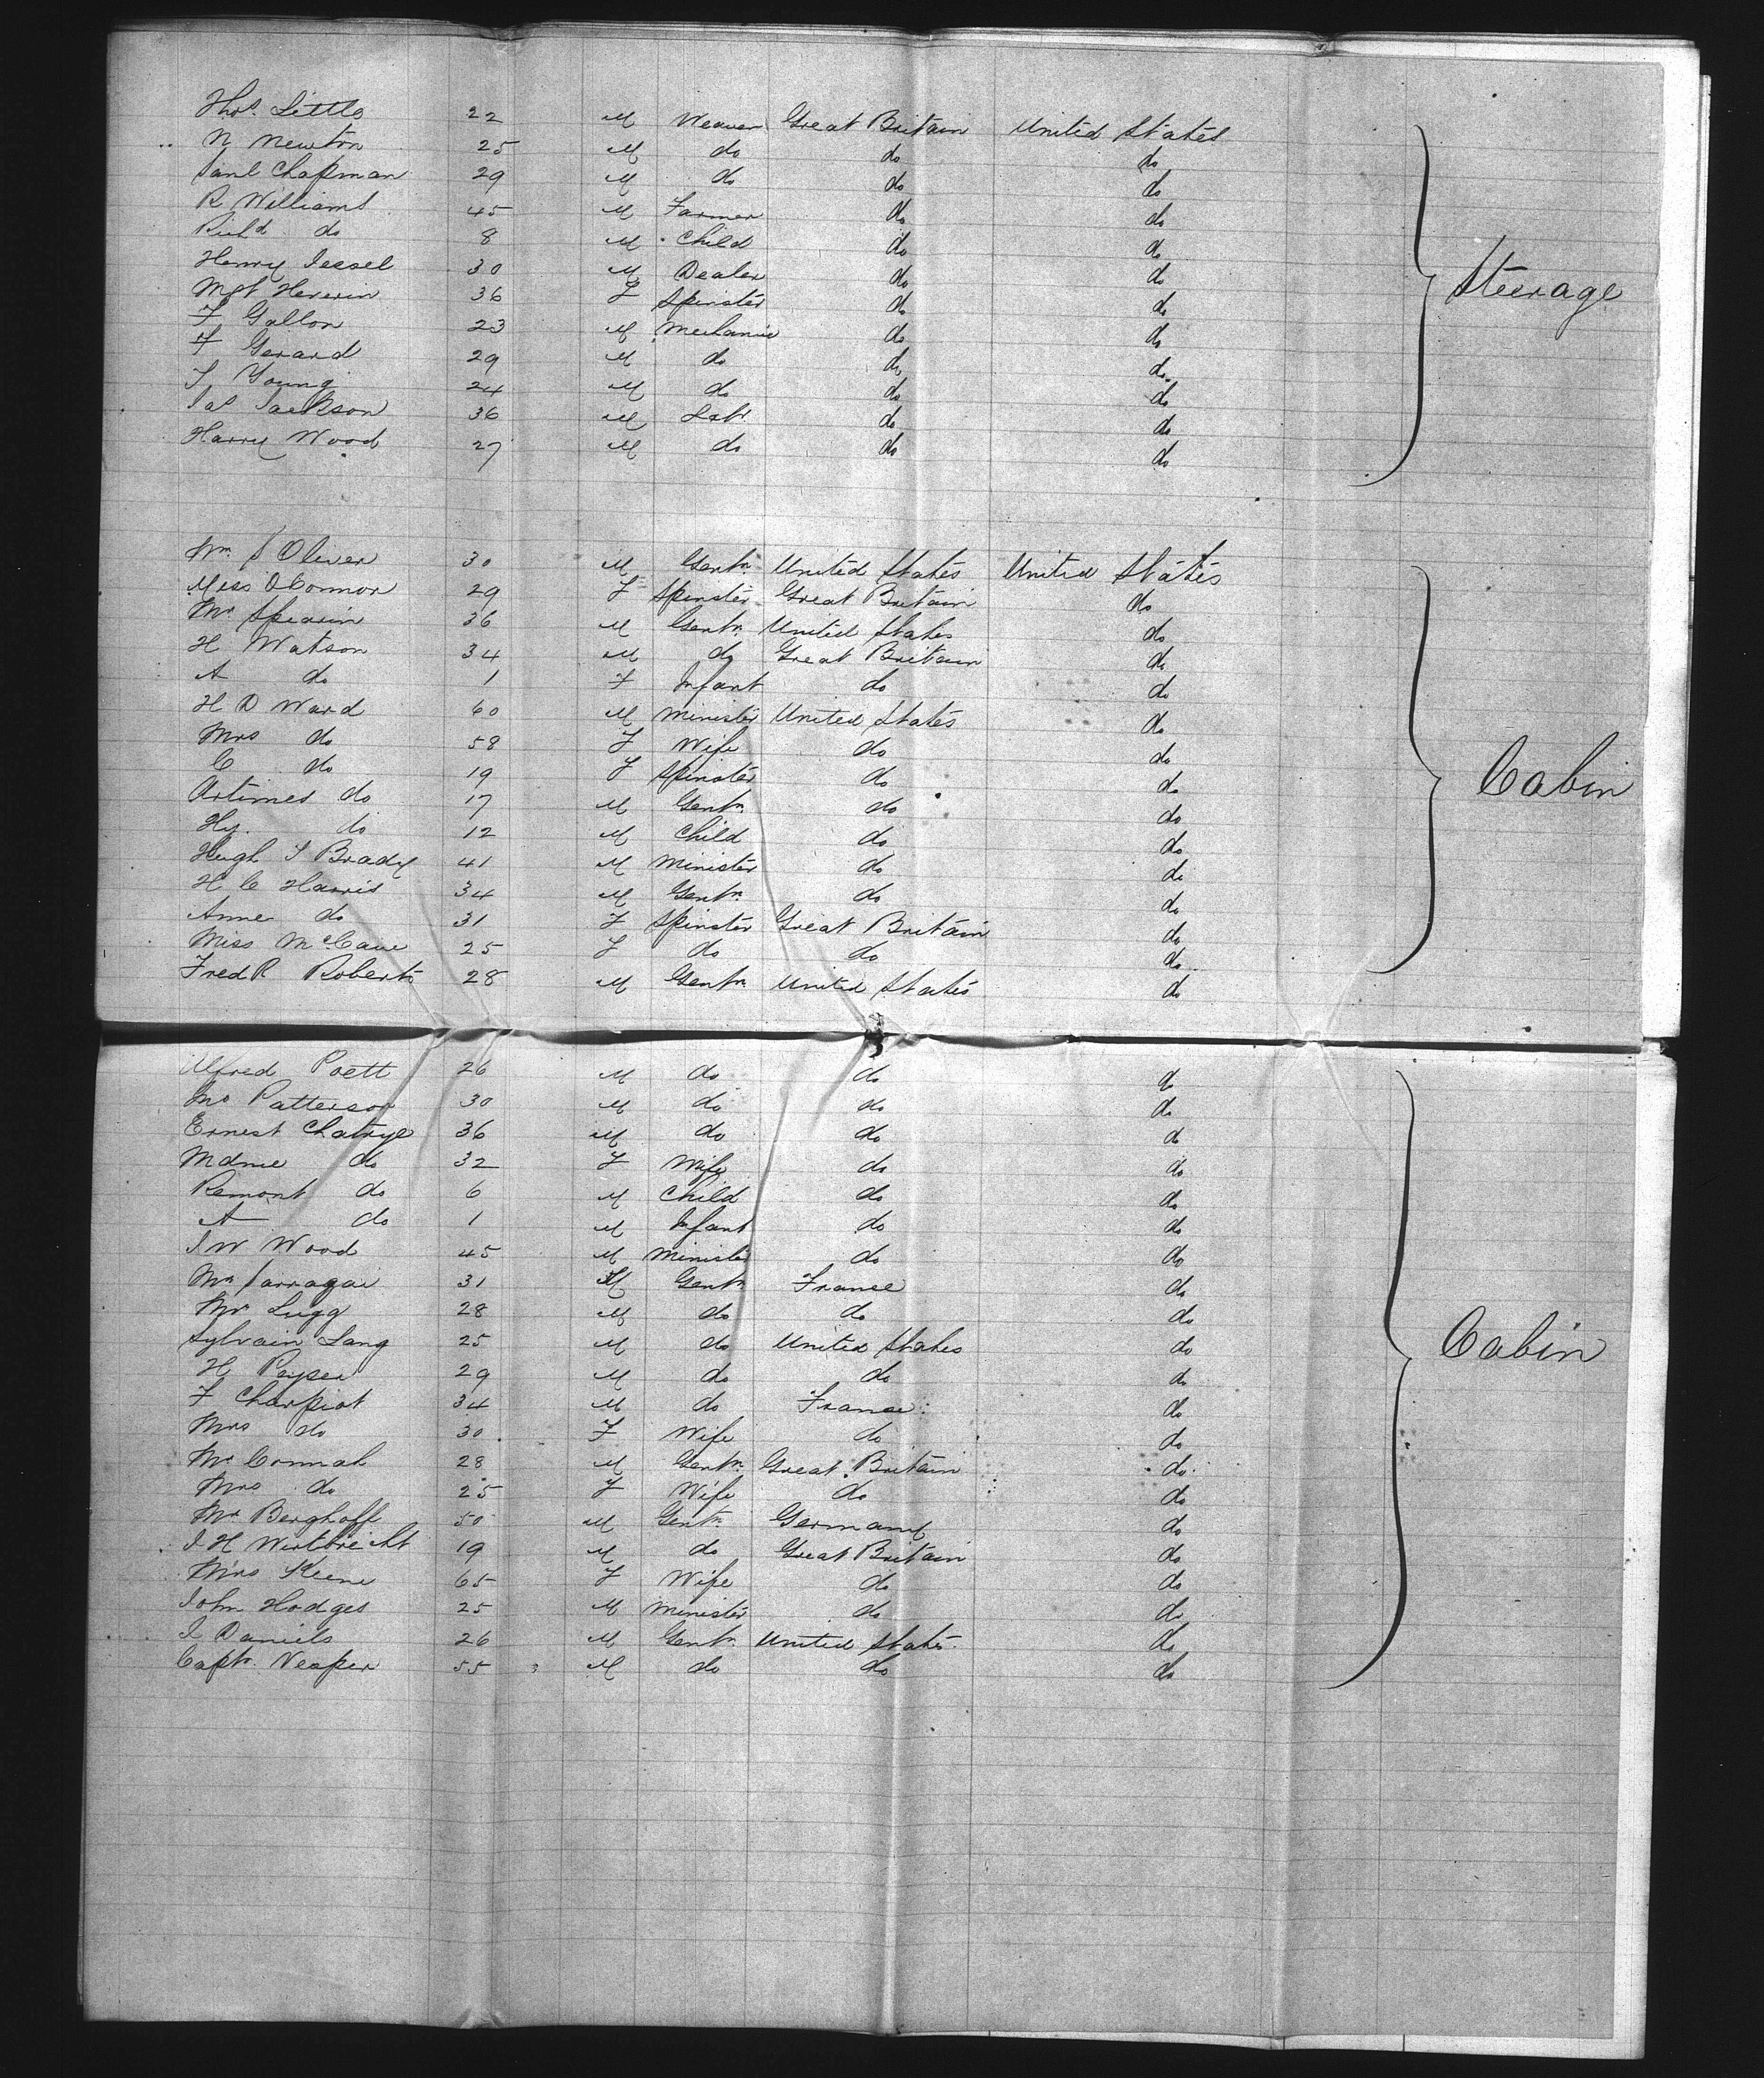 Thos. Little 22 M Weaver Great Britain United States
N Newton 25 M do do do
Saml Chapman 29 M do do do
R Williams 45 M Farmer do do
Richd do 8 M Child do do
Henry Jessel 30 M Dealer do do
Mgt Heverin 36 F Spinster do do
F Gallon 23 M Mechanic do do
F Gerard 29 M do do do
S Young 24 M do do do
Jas Jackson 36 M Labr. do do
Harry Wood 27 M do do do
Steerage
Wm S Oliver 30 M Gentn. United States United States
Miss OConnor 29 F Spinster Great Britain do
Mr Spearin 36 M Gentn. United States do
H Watson 34 M do Great Britain do
A do 1 F Infant do do
H D Ward 60 M Minister United States do
Mrs do 58 F Wife do do
C do 19 F Spinster do do
Artimes do 17 M Gentn. do do
Hy. do 12 M Child do do
Hugh S Brady 41 M Minister do do
H C Harris 34 M Gentn. do do
Anne do 31 F Spinster Great Britain do
Miss McCave 25 F do do do
Fred R Roberts 28 M Gentn United States do
Cabin
Alfred Poett 26 M do do do
Mr Patterson 30 M do do do
Ernest Chatrye 36 M do do do
Mdme do 32 F Wife do do
Remont do 6 M Child do do
A do 1 M Infant do do
J W Wood 45 M Minister do do
Mr Sarragai 31 M Gentn France do
Mr Lugg 28 M do do do
Sylvain Lang 25 M do United States do
H Peyser 29 M do do do
F Charpiot 34 M do France do
Mrs do 30 F Wife do do
Mr Connah 28 M Gentn. Great Britain do
Mrs do 25 F Wife do do
Mr Berghoff 50 M Gentn. Germany do
J H 19 M do Great Britain do
Mrs Keene 65 F Wife do do
John Hodges 25 M Minister do do
J Daniels 26 M Gentn. United States do
Captn. Neaper 55 M do do do
Cabin